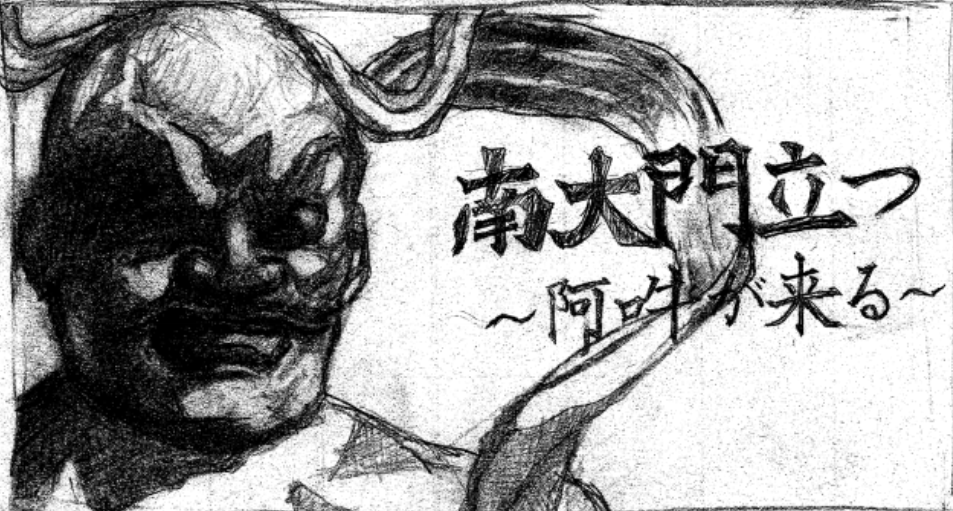 南大門立つ
～阿吽が来る～